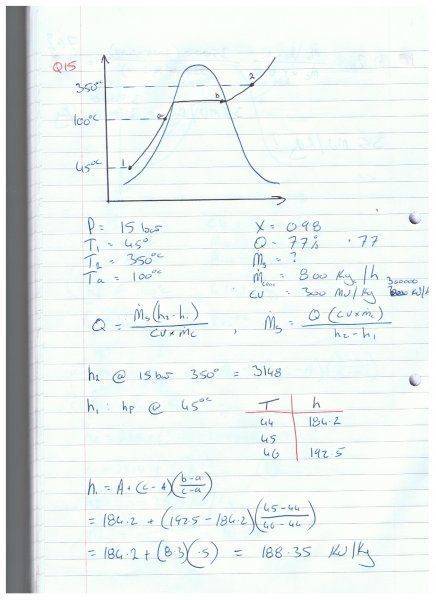 Q15
350°C
2
b
100°C
a
45°C
1
P = 15 bar
X = 0.98
T1 = 45°
Q = 77% .77
T2 = 350°C
Ṁs = ?
Ta = 100°C
Ṁcoal = 800 Kg/h
CV = 300 MJ/Kg 300000 KJ/Kg
Q = Ṁs(h2-h1) / CV x Mc , Ṁs = Q (CV x Mc) / h2-h1
h2 @ 15 bar 350° = 3148
h1 : hf @ 45°C
T h
44 184.2
45
46 192.5
h = A + (C-A)(b-a / c-a)
= 184.2 + (192.5 - 184.2)(45-44 / 46-44)
= 184.2 + (8.3)(.5) = 188.35 KJ/Kg